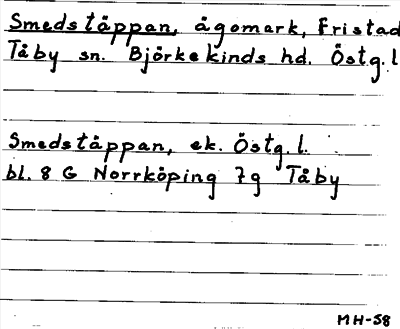 Smedstäppan, ägomark, Fristad
Tåby sn. Björkekinds hd. Östg.l
Smedstäppan, ek. Östg.l.
bl. 8 G Norrköping 7g Tåby
MH-58